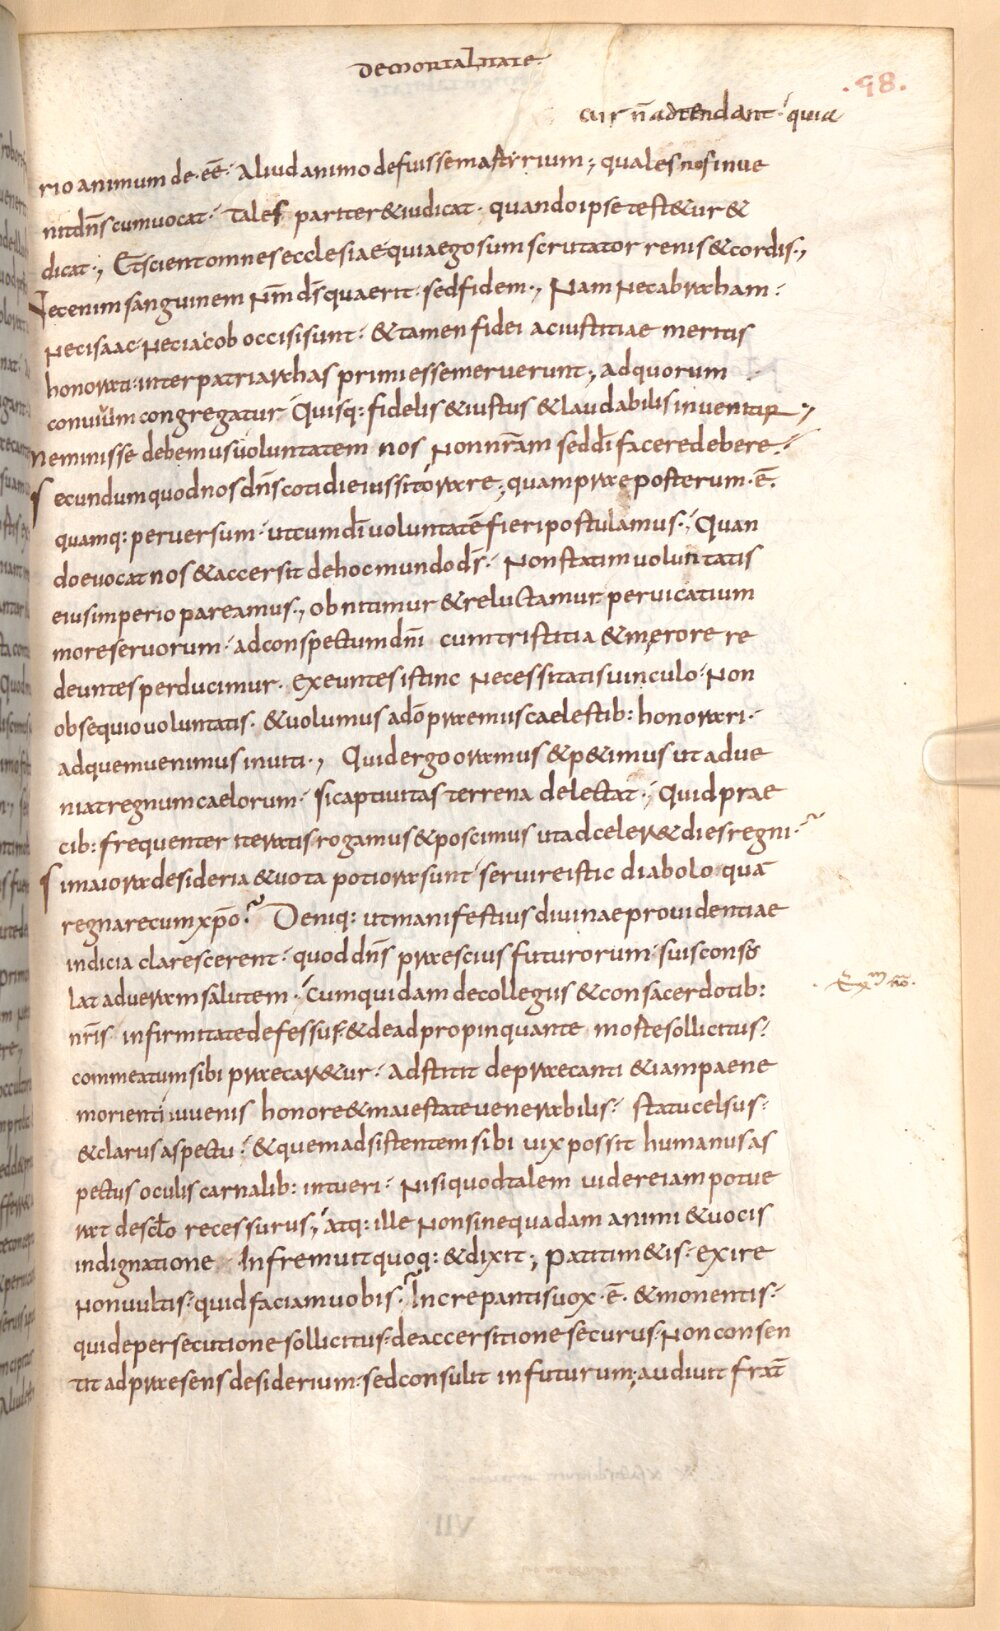 DE MORTALITATE
.98.
cur n̄ adtendant · quia
rio animum de·eē· Aliud animo defuisse martyrium; quales nos inue
nit dn̄s cum uocat· Tales pariter & iudicat· quando ipse test&ur &
dicat·, Et scient omnes ecclesiae· quia ego sum scrutator renis & cordis·,
Nec enim sanguinem nr̄m ds̄ quaerit· sed fidem·, Nam nec abraham·
nec isaac· nec iacob occisi sunt· & tamen fidei ac iustitiae meritis
honorati· inter patriarchas primi esse meruerunt; ad quorum
conuiuium congregatur Quisq: fidelis & iustus & laudabilis inuenitur·,
Meminisse debemus uoluntatem nos non nr̄am sed dī facere debere·
Secundum quod nos dn̄s cotidie iussit orare; quam praeposterum·ē·
quamq: peruersum· ut cum dī uoluntatē fieri postulamus·, Quan
do euocat nos & accersit de hoc mundo ds̄· Non statim uoluntatis
eius imperio pareamus·, obnitimur & reluctamur· peruicatium
more seruorum· ad conspectum dn̄i cum tristitia & męrore re
deuntes perducimur· exeuntes istinc necessitatis uinculo· non
obsequio uoluntatis· & uolumus ad õ praemiis caelestib: honorari·
ad quem uenimus inuiti·, Quid ergo oramus & p&imus ut adue
niat regnum caelorum· si captiuitas terrena delectat·, Quid prae
cib: frequenter iteratis rogamus & poscimus ut adceler& dies regni·
Si maiora desideria & uota potiora sunt· seruire istic diabolo quā
regnare cum xp̄o· Deniq: ut manifestius diuinae prouidentiae
indicia clarescerent· quod dn̄s praescius futurorum· suis conso
lat ad ueram salutem· Cum quidam de collegiis & consacerdotib:
nr̄is infirmitate defessus· & de adpropinquante morte sollicitus·
commeatum sibi praecar&ur· Adstitit depraecanti & iam paene
morienti iuuenis honore & maiestate uenerabilis· statu celsus·
& clarus aspectu· & quem adsistentem sibi uix possit humanus as
pectus oculis carnalib: intueri· Nisi quod talem uidere iam potue
rat de sclo recessurus; atq: ille non sine quadam animi & uocis
indignatione Infremuit quoq: & dixit; patitim&is· exire
non uultis· quid faciam uobis· Increpantis uox·ē· & monentis·
qui de persecutione sollicitus· de accersitione securus· Non consen
tit ad praesens desiderium· sed consulit in futurum; audiuit frat̄